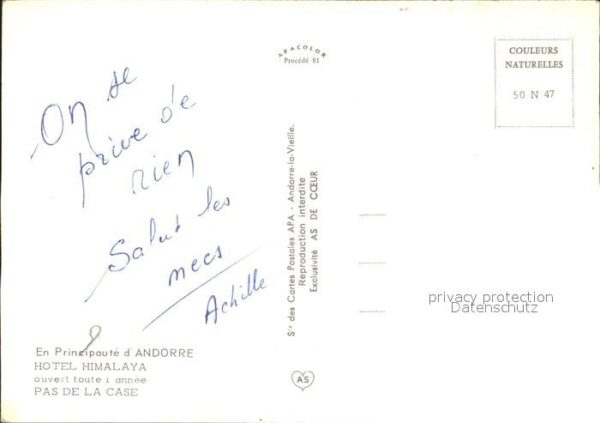 APACOLOR
Procédé 81
COULEURS
NATURELLES
50 N 47
On se
prive de
rien
Salut les
mecs
Achille
Sté des Cartes Postales APA - Andorre-la-Vieille.
Reproduction interdite
Exclusivité AS DE CŒUR
privacy protection
Datenschutz
En Principauté d'ANDORRE
HOTEL HIMALAYA
ouvert toute l'année
PAS DE LA CASE
AS